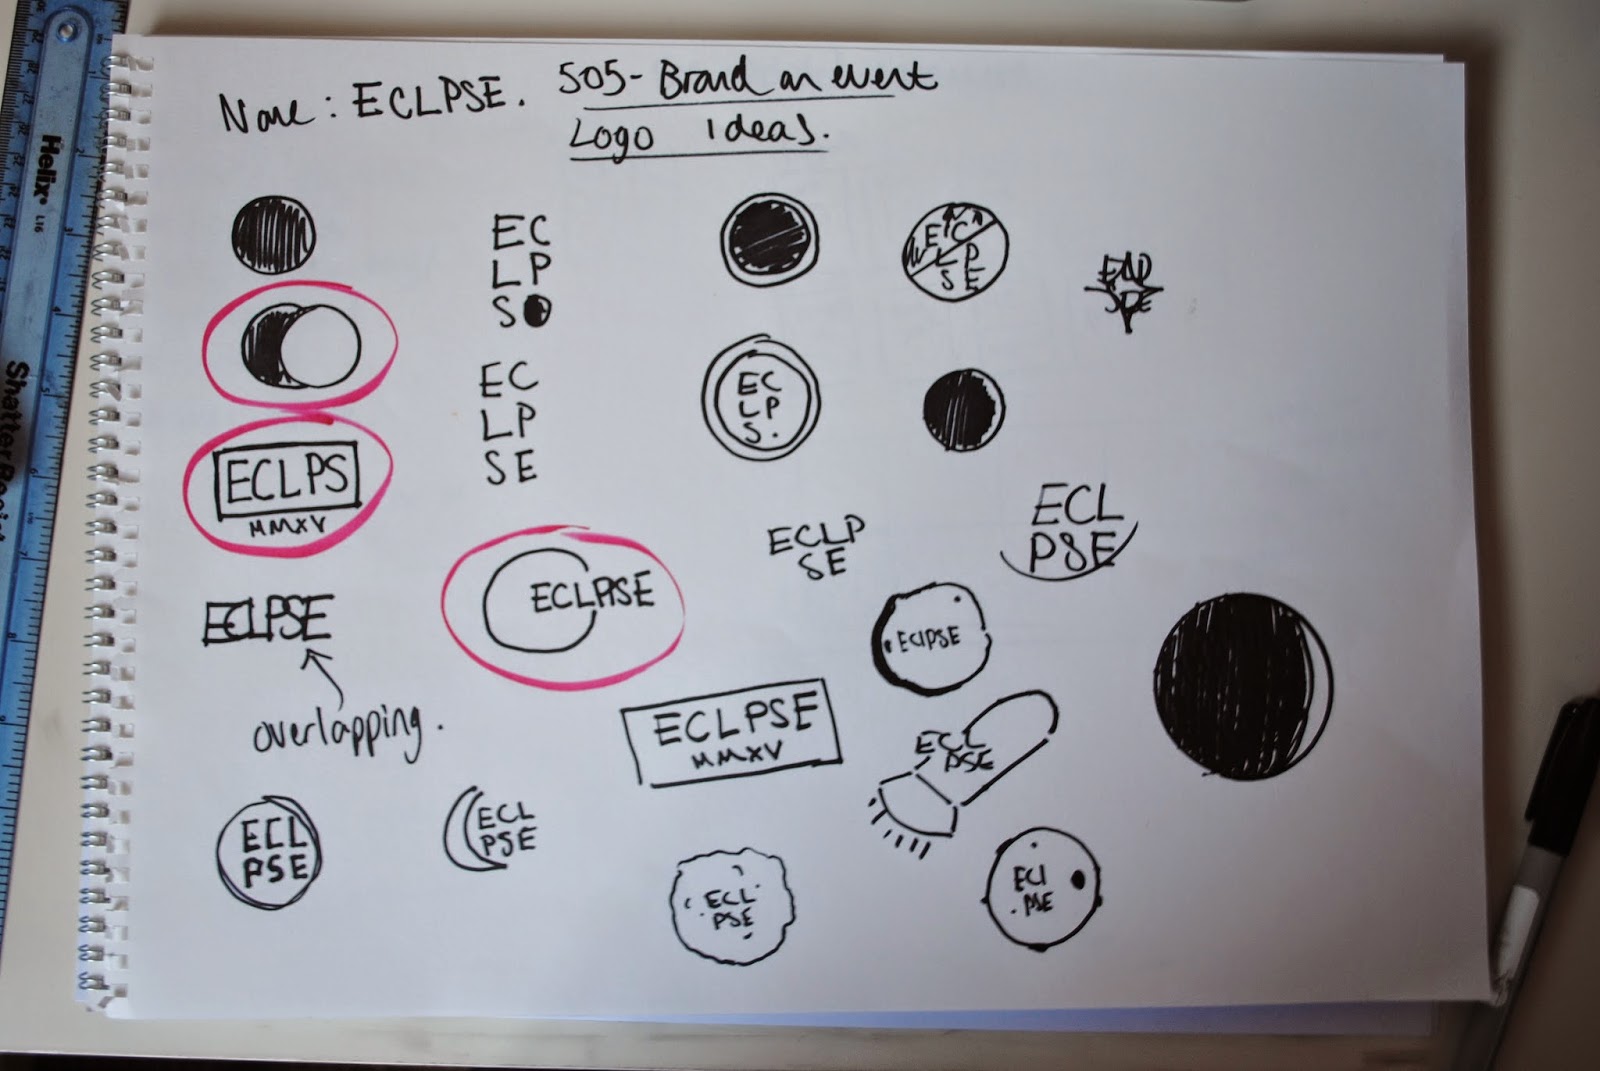 Name: ECLPSE.
505- Brand an event
Logo Ideas.
EC
LP
S
EC
LP
SE
ECLPS
MMXV
ECLPSE
overlapping.
ECLPSE
EC
LP
SE
EC
LP
S.
ECLP
SE
ECL
PSE
ECLPSE
ECLPSE
MMXV
ECL
PSE
ECL
PSE
ECL
PSE
ECL
PSE
ECL
PSE
Helix
L16
Shatter